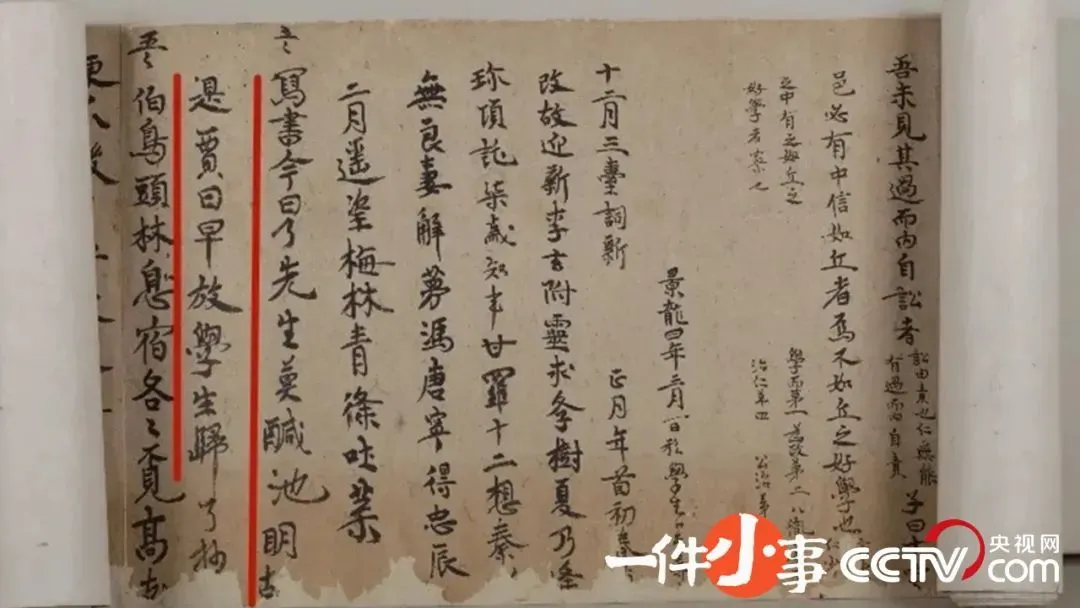 吾未見其過而内自訟者
訟由責也仁無能
有過而自責
子曰十
邑必有中信如丘者焉不如丘之好學也
之中有之如丘之
好學者寡也
學而第一 為政第二 八佾
治仁第四 公冶
景龍四年三月一日私學生
十二月三臺詞新 正月年首初春
改故迎新李玄附靈求學樹夏乃逢
珍項託柒歲知事甘羅十二想秦
無良妻解夢馮唐寧得忠辰
二月遥望梅林青條吐葉
寫書今日了先生莫醎池明
是賈日早放學生歸 了抄
伯鳥頭林息宿各〻覓高
一件小事 CCTV.com 央视网